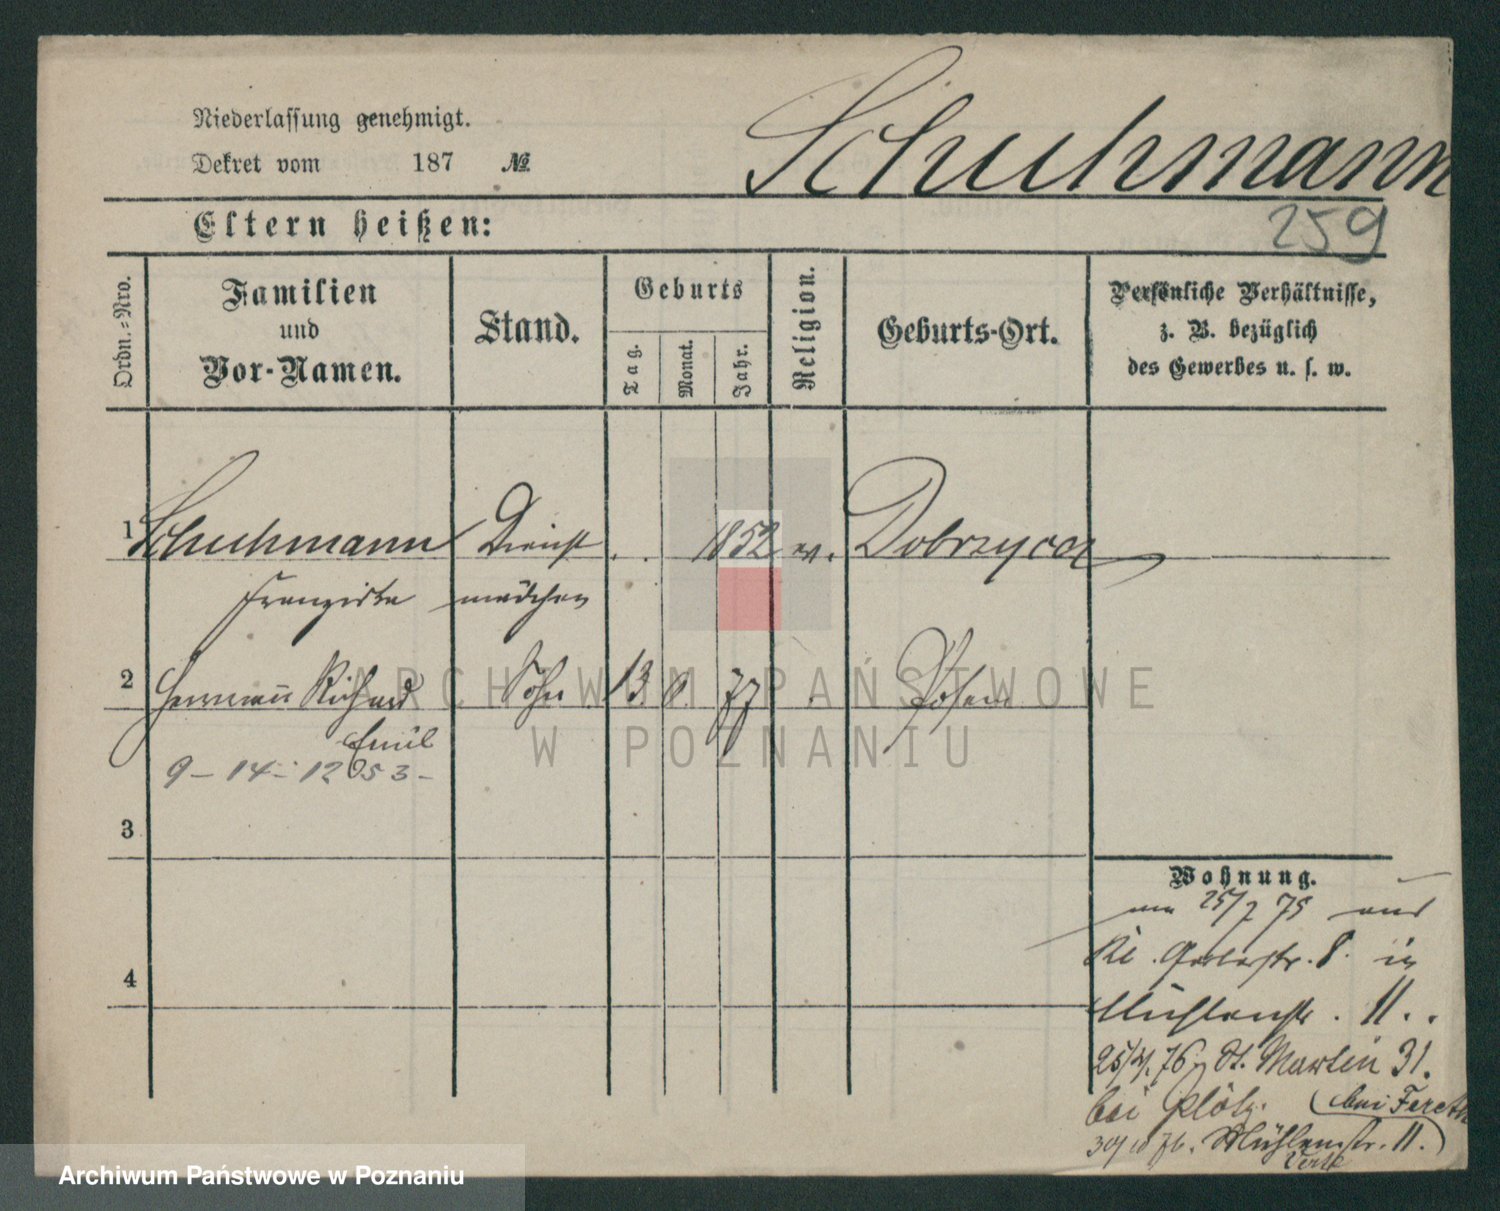 Niederlassung genehmigt.
Dekret vom 187 №
Schuhmann
Eltern heißen:
259
Ordn.-Nro.
Familien
und
Vor-Namen.
Stand.
Geburts
Tag.
Monat.
Jahr.
Religion.
Geburts-Ort.
Persönliche Verhältnisse,
z. B. bezüglich
des Gewerbes u. s. w.
1 Schuhmann Dienst . . 1852 Dobrzyca
Franziska mädchen
2 Hermann Richard Sohn 13. 8. 77 Posen
Emil
9 - 14 - 1253 -
3
4
Wohnung.
25/7 75 aus
Kl. Gerberstr. 8. in
Mühlenstr. 11.
25/4. 76. St. Martin 31.
bei Plötz. (bei
Mühlenstr. 11.)
ARCHIWUM PAŃSTWOWE
W POZNANIU
Archiwum Państwowe w Poznaniu